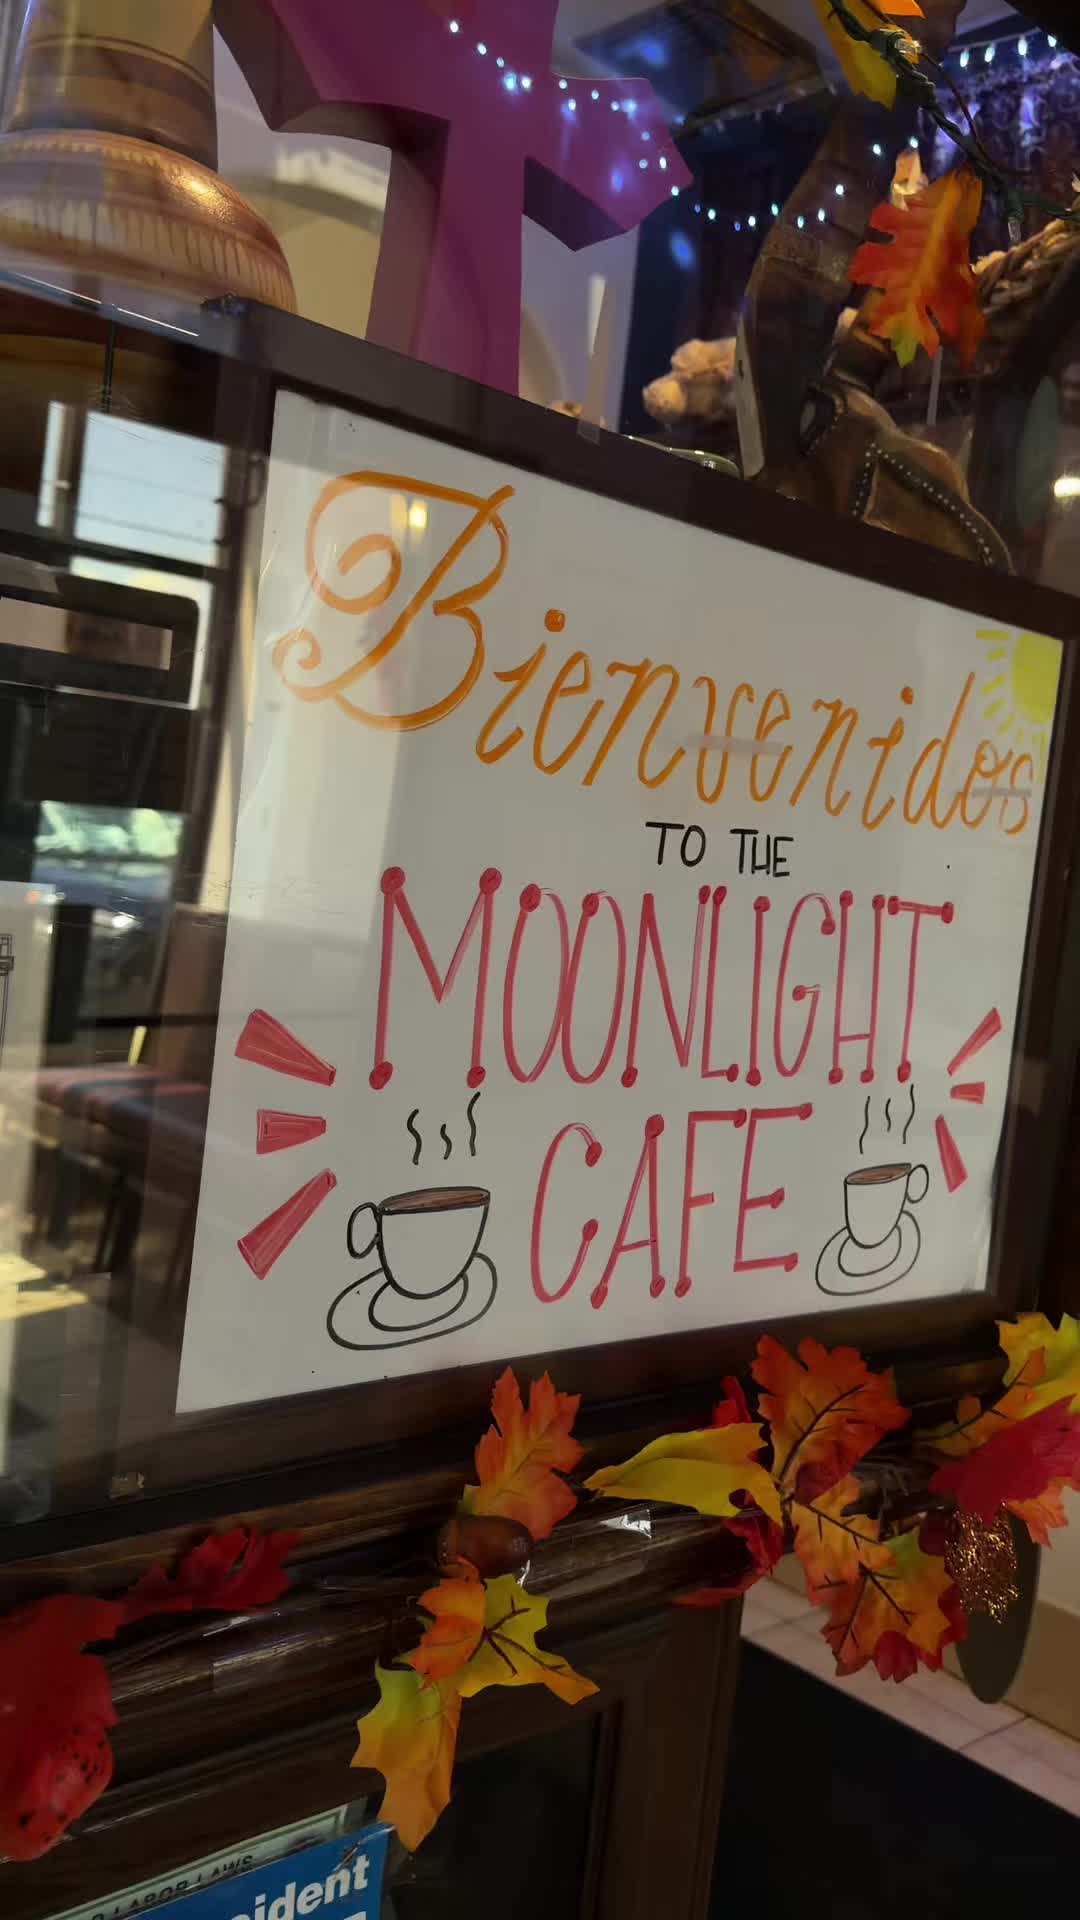 Bienvenidos
TO THE
MOONLIGHT
CAFE
LABOR LAWS
ident